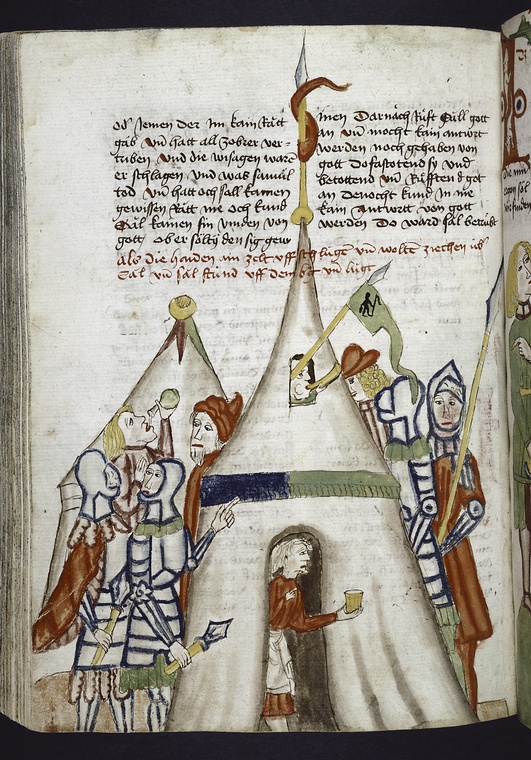 od Jemen der Im kain Rått
gab vn̄ hatt all zobrer ver-
triben vnd die wisagen
er schlagen vnd was samúel
tod vn̄ hatt och sall kainen
gewissen Rått me och kund
Sal kainen sin vinden von
gott ob er solty den sig gew
inen Darnach Rúft Sall gott
an vn̄ mocht kain antwrt
werden noch gehaben von
gott Do fastotend sy vnd
bettottend vn̄ Rúftend got
an Denocht kund In nie
kain antwrtt von gott
werden Do ward sal betrúbt
Als die haiden ain zelt vff schlúgent vn̄ woltt ziechen vff
Sal vn̄ sal stúnd vff dem vn̄ lúgt